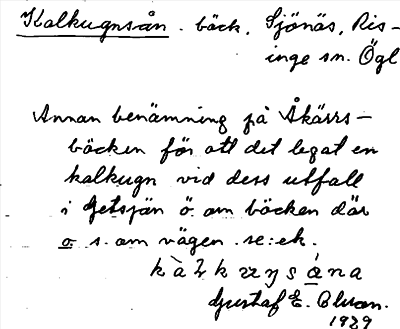 Kalkugnsån. bäck, Sjönäs, Ris-
inge sn. Ögl
Annan benämning på Åkärrs-
bäcken för att det legat en
kalkugn vid dess utfall
i Getsjön ö. om bäcken där
o s. om vägen. se: ek.
Gustaf E. Bluan.
1929